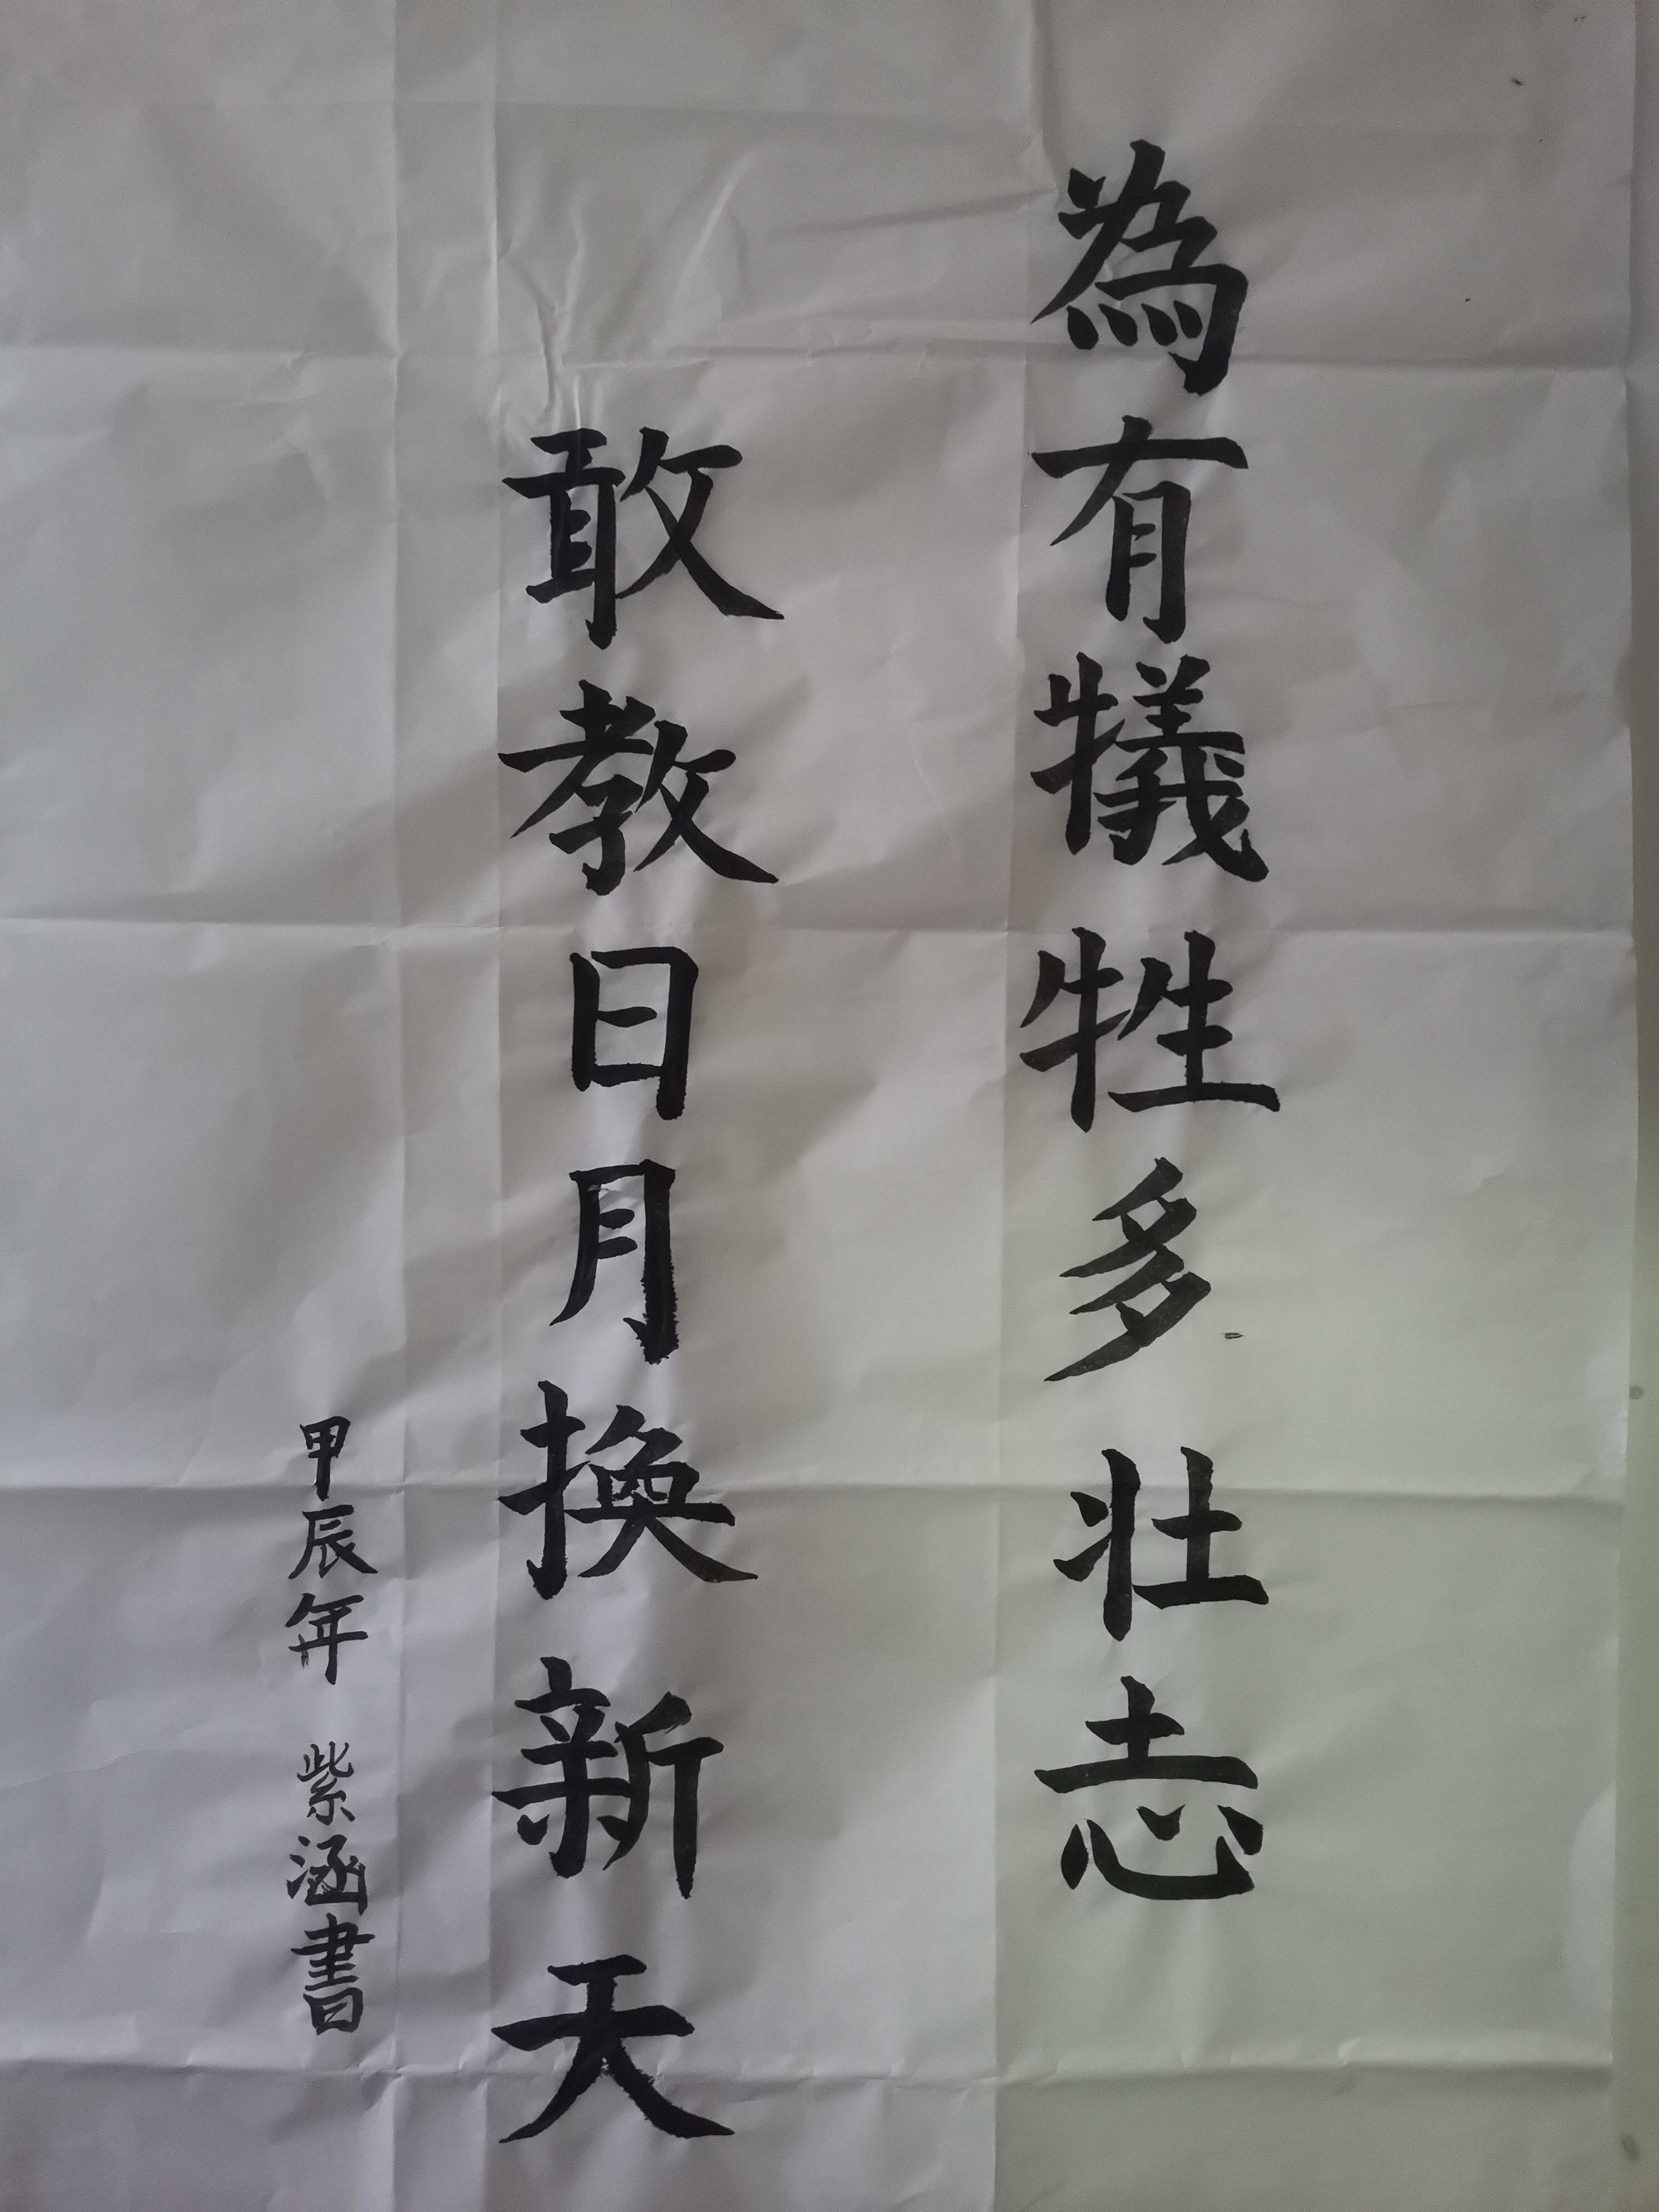 為有犧牲多壮志
敢教日月換新天
甲辰年 紫涵書